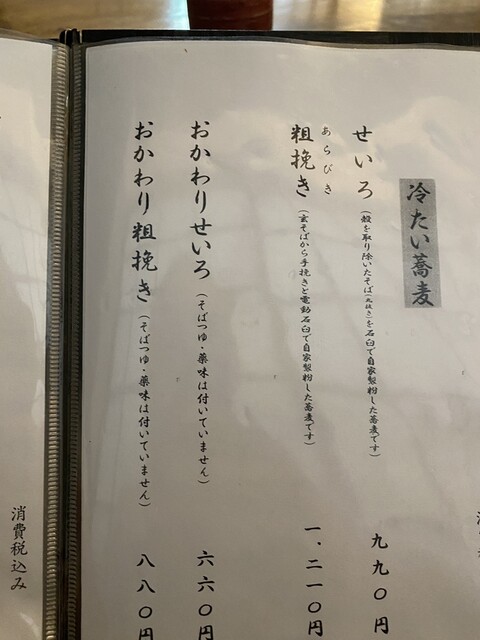 冷たい蕎麦
せいろ（殻を取り除いたそば（丸抜き）を石臼で自家製粉した蕎麦です） 九九〇円
あらびき
粗挽き（玄そばから手挽きと電動石臼で自家製粉した蕎麦です） 一、二一〇円
おかわりせいろ（そばつゆ・薬味は付いていません） 六六〇円
おかわり粗挽き（そばつゆ・薬味は付いていません） 八八〇円
消費税込み